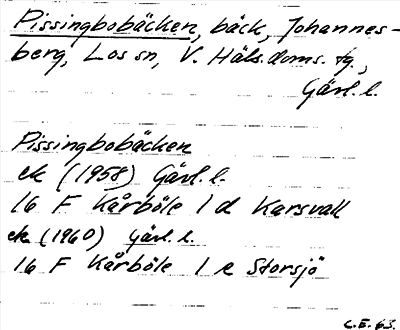 Pissingbobäcken, bäck, Johannes-
berg, Los sn, V. Häls. doms. tg.,
Gävl. l.
Pissingbobäcken
ek (1958) Gävl. l.
16 F Kårböle 1 d Karsvall
ek (1960) Gävl. l.
16 F Kårböle 1 e Storsjö
C.E. 63.